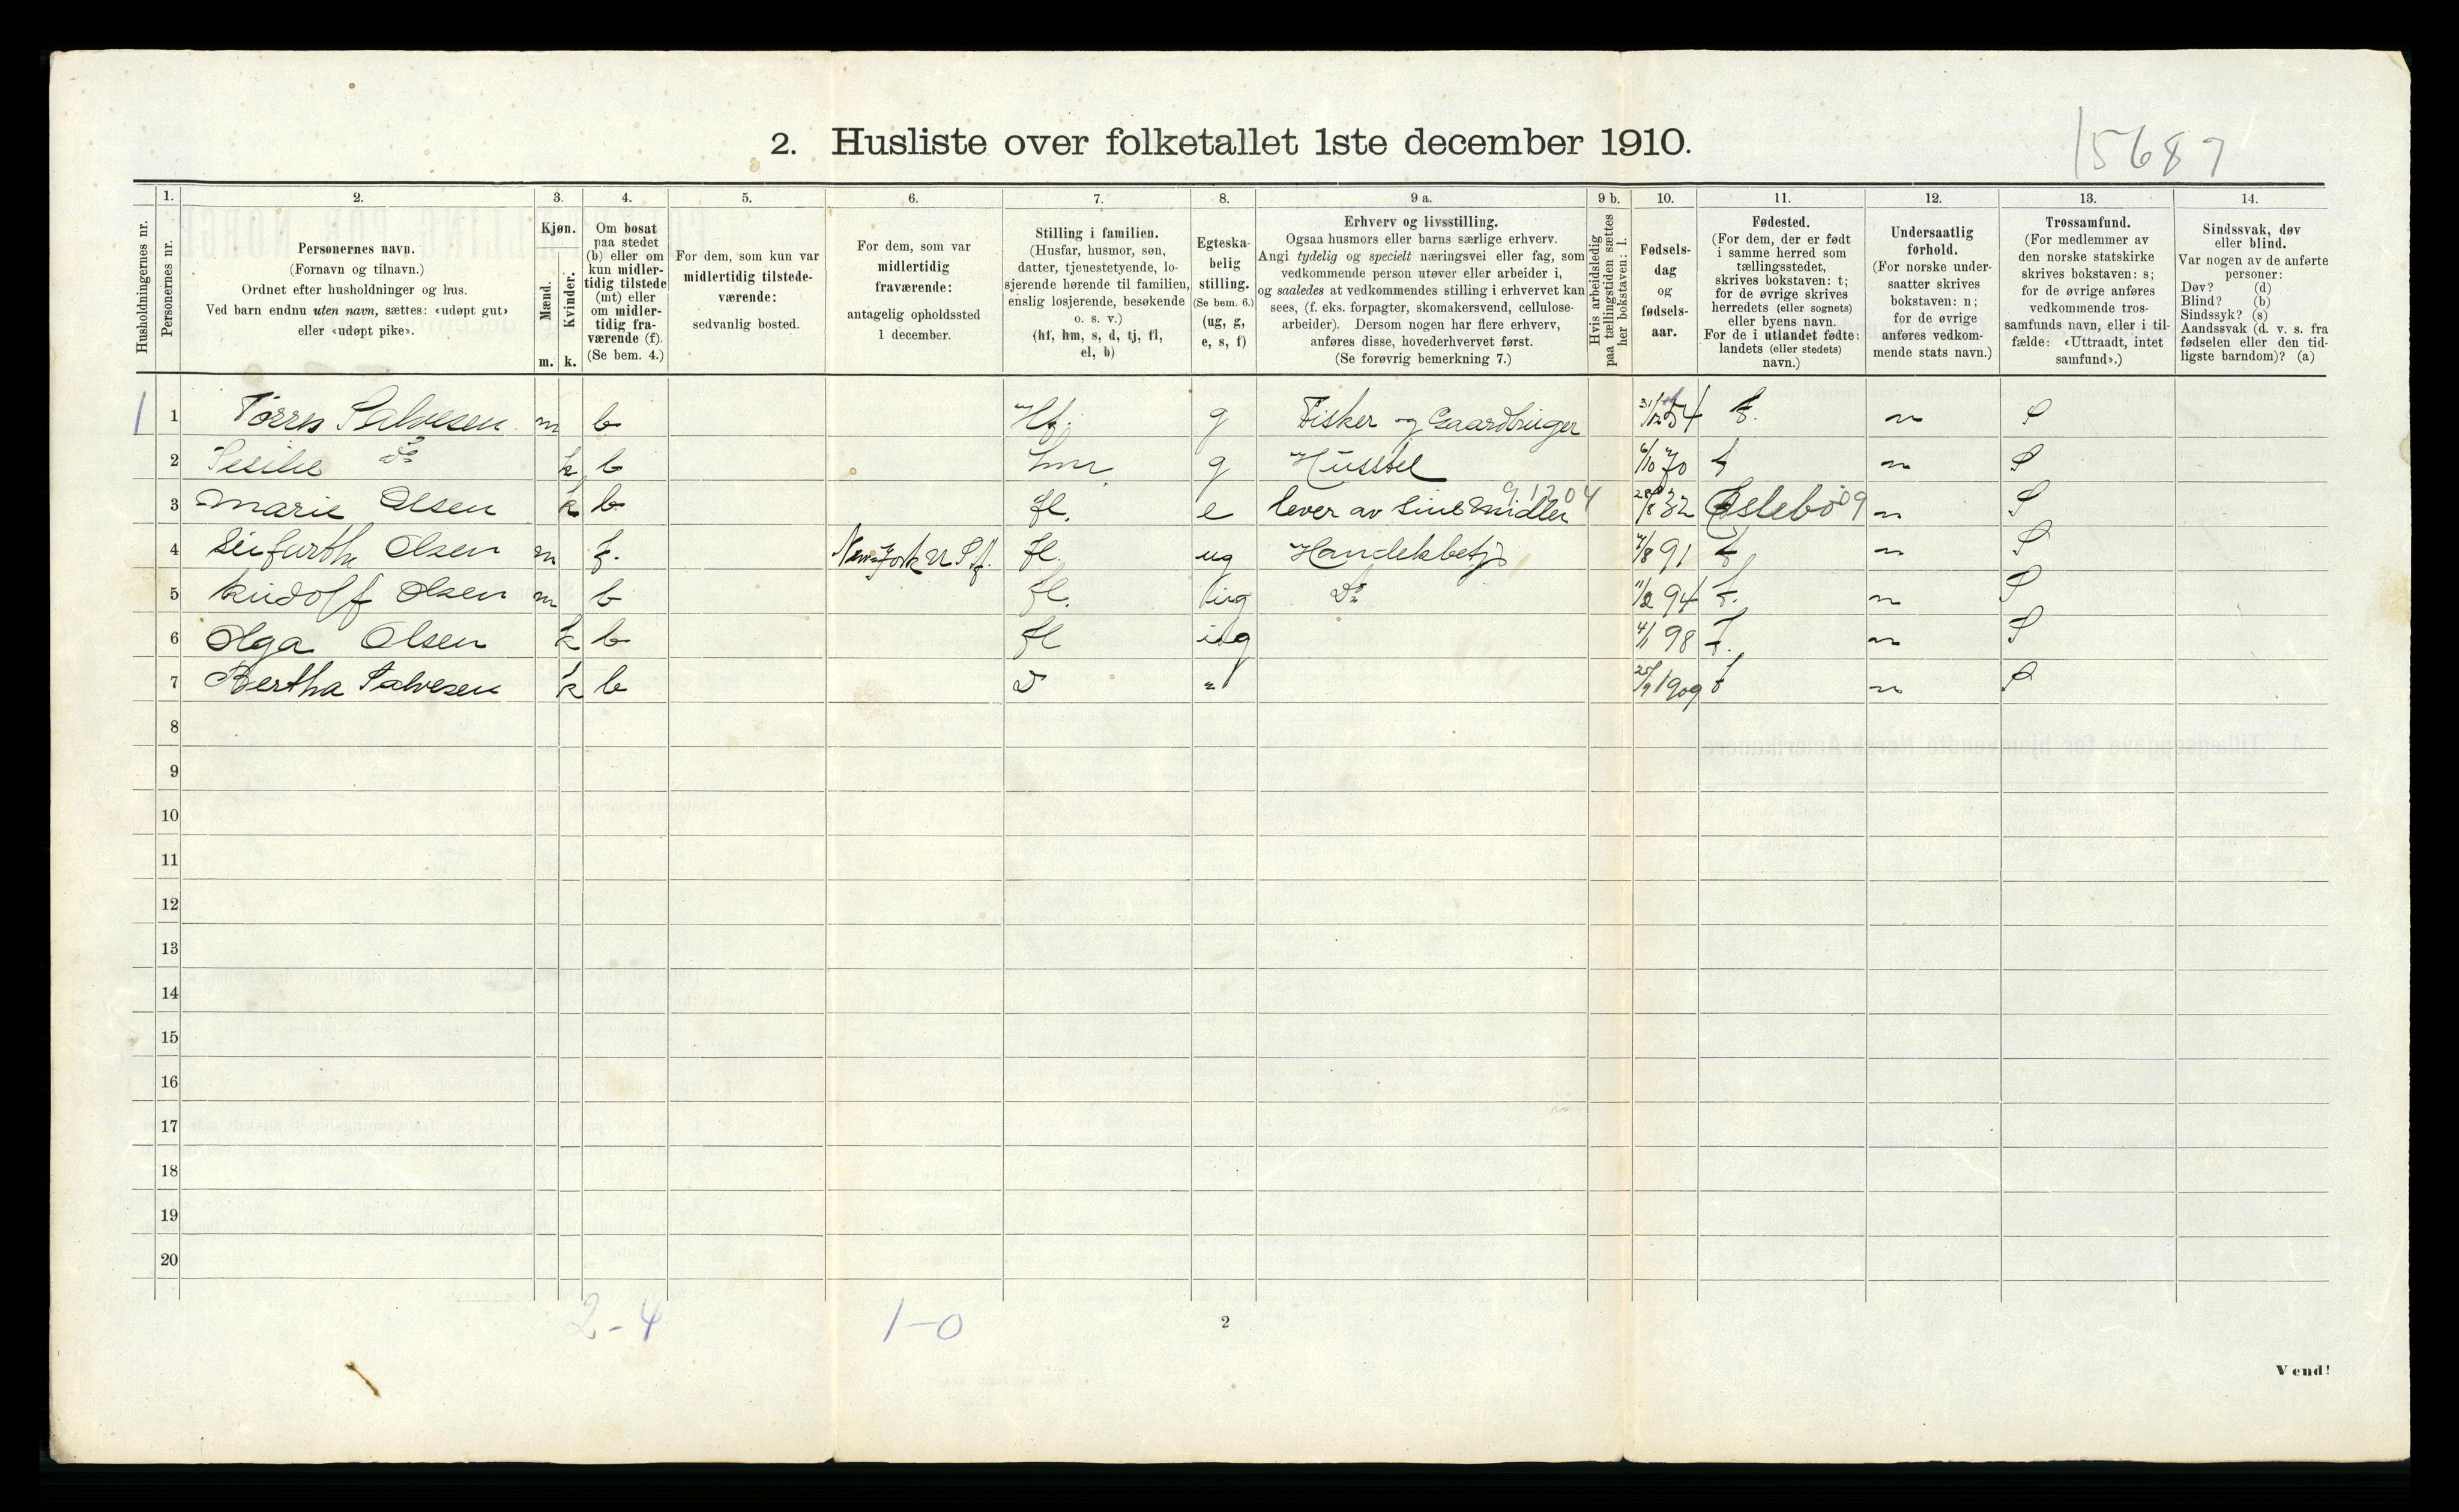 2. Husliste over folketallet 1ste december 1910.
15687
Husholdningernes nr.
1.
Personernes nr.
2.
Personernes navn.
(Fornavn og tilnavn.)
Ordnet efter husholdninger og hus.
Ved barn endnu uten navn, sættes: «udøpt gut»
eller «udøpt pike».
3.
Kjøn.
Mænd.
Kvinder.
m. k.
4.
Om bosat
paa stedet
(b) eller om
kun midler-
tidig tilstede
(mt) eller
om midler-
tidig fra-
værende (f).
(Se bem. 4.)
5.
For dem, som kun var
midlertidig tilstede-
værende:
sedvanlig bosted.
6.
For dem, som var
midlertidig
fraværende:
antagelig opholdssted
1 december.
7.
Stilling i familien.
(Husfar, husmor, søn,
datter, tjenestetyende, lo-
sjerende hørende til familien,
enslig losjerende, besøkende
o. s. v.)
(hf, hm, s, d, tj, fl,
el, b)
8.
Egteska-
belig
stilling.
(Se bem. 6.)
(ug, g,
e, s, f)
9 a.
Erhverv og livsstilling.
Ogsaa husmors eller barns særlige erhverv.
Angi tydelig og specielt næringsvei eller fag, som
vedkommende person utøver eller arbeider i,
og saaledes at vedkommendes stilling i erhvervet kan
sees, (f. eks. forpagter, skomakersvend, cellulose-
arbeider). Dersom nogen har flere erhverv,
anføres disse, hovederhvervet først.
(Se forøvrig bemerkning 7.)
9 b.
Hvis arbeidsledig
paa tællingstiden sættes
her bokstaven: l.
10.
Fødsels-
dag
og
fødsels-
aar.
11.
Fødested.
(For dem, der er født
i samme herred som
tællingsstedet,
skrives bokstaven: t;
for de øvrige skrives
herredets (eller sognets)
eller byens navn.
For de i utlandet fødte:
landets (eller stedets)
navn.)
12.
Undersaatlig
forhold.
(For norske under-
saatter skrives
bokstaven: n;
for de øvrige
anføres vedkom-
mende stats navn.)
13.
Trossamfund.
(For medlemmer av
den norske statskirke
skrives bokstaven: s;
for de øvrige anføres
vedkommende tros-
samfunds navn, eller i til-
fælde: «Uttraadt, intet
samfund».)
14.
Sindssvak, døv
eller blind.
Var nogen av de anførte
personer:
Døv? (d)
Blind? (b)
Sindssyk? (s)
Aandssvak (d. v. s. fra
fødselen eller den tid-
ligste barndom)? (a)
1 1 Tørres Salvesen m b Hf. g Fisker og Gaardbruger 31/12 54 t. n S
2 Sesilie do k b hm g Husstel 6/10 70 t n S
3 Marie Olsen k b fl. e lever av sine midler 91204 32 09 n S
4 Olsen m f. New York U.S.A. fl. ug Handelsbetj 91 t n S
5 Rudolf Olsen m b fl. ug Do 94 t. n S
6 Olga Olsen k b fl ug 4/1 98 t. n S
7 Bertha Salvesen k b d " 25/9 1909 t n S
8
9
10
11
12
13
14
15
16
17
18
19
20
2-4 1-0
2
Vend!